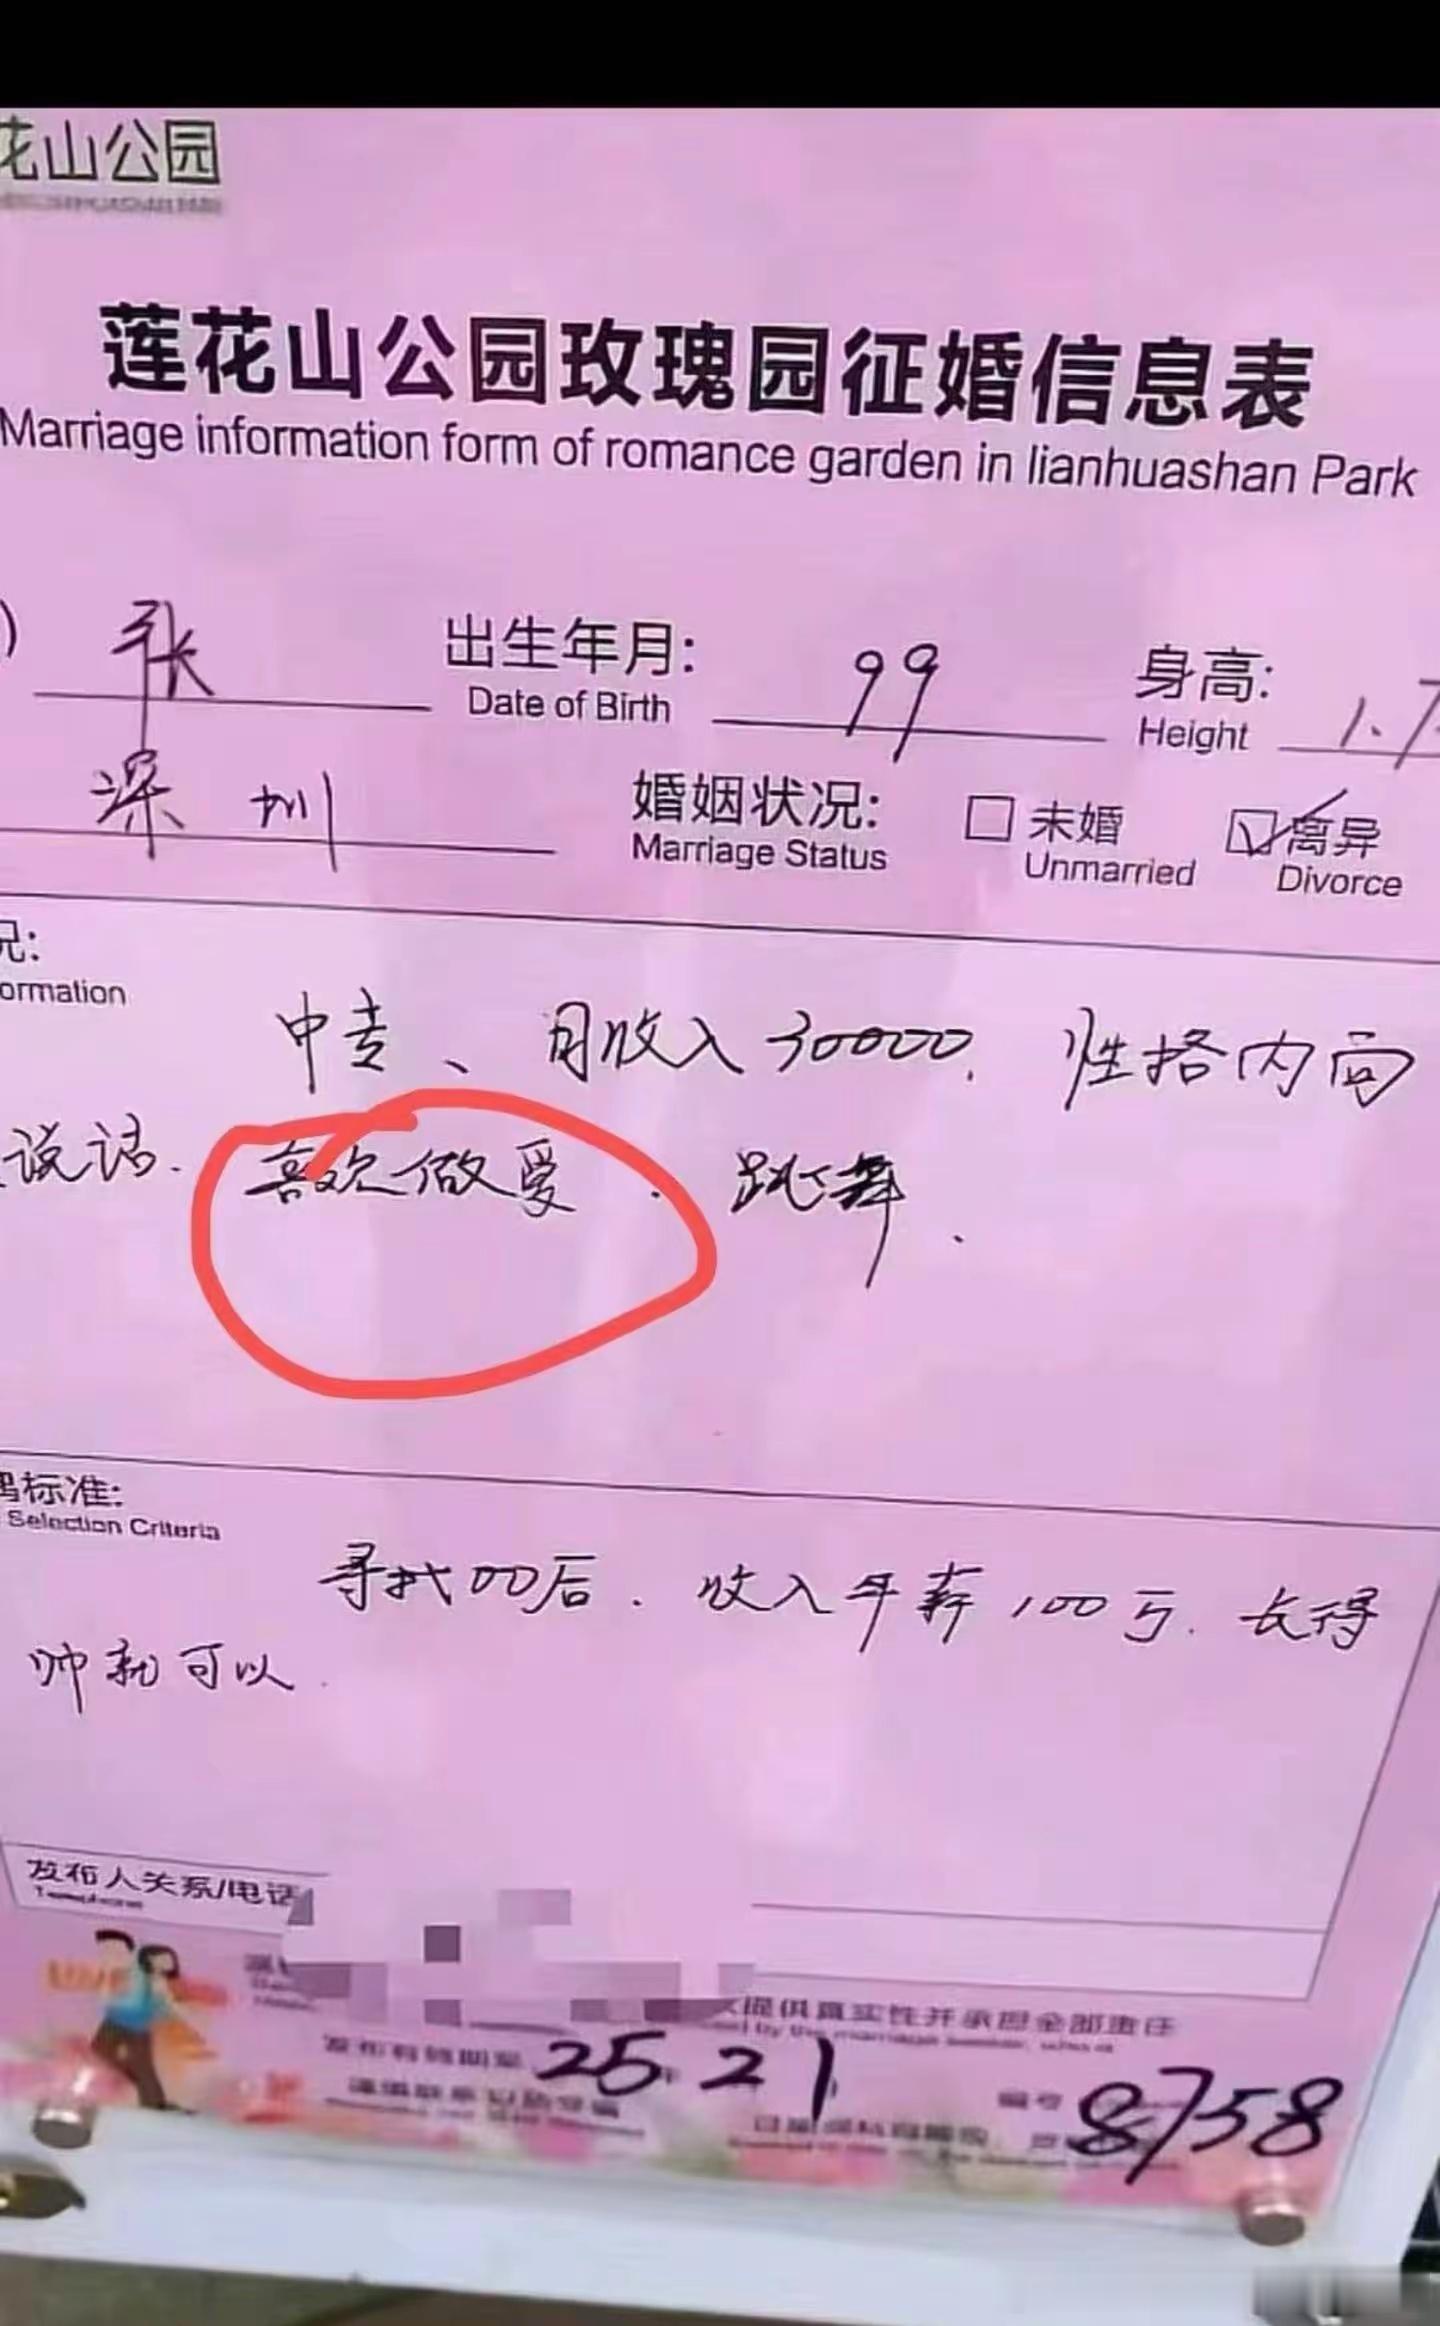 花山公园
莲花山公园玫瑰园征婚信息表
Marriage information form of romance garden in lianhuashan Park
) 张 出生年月: 99 身高: 1.7
Date of Birth Height
深圳 婚姻状况: 未婚 离异
Marriage Status Unmarried Divorce
况:
ormation
中专、月收入30000. 性格内向
说话. 喜欢做爱. 跳舞.
偶标准:
Selection Criteria
寻找00后. 收入年薪100万. 长得
帅就可以.
发布人关系/电话
Telephone
提供真实性并承担全部责任
发布有效期至 25 21 编号 8758